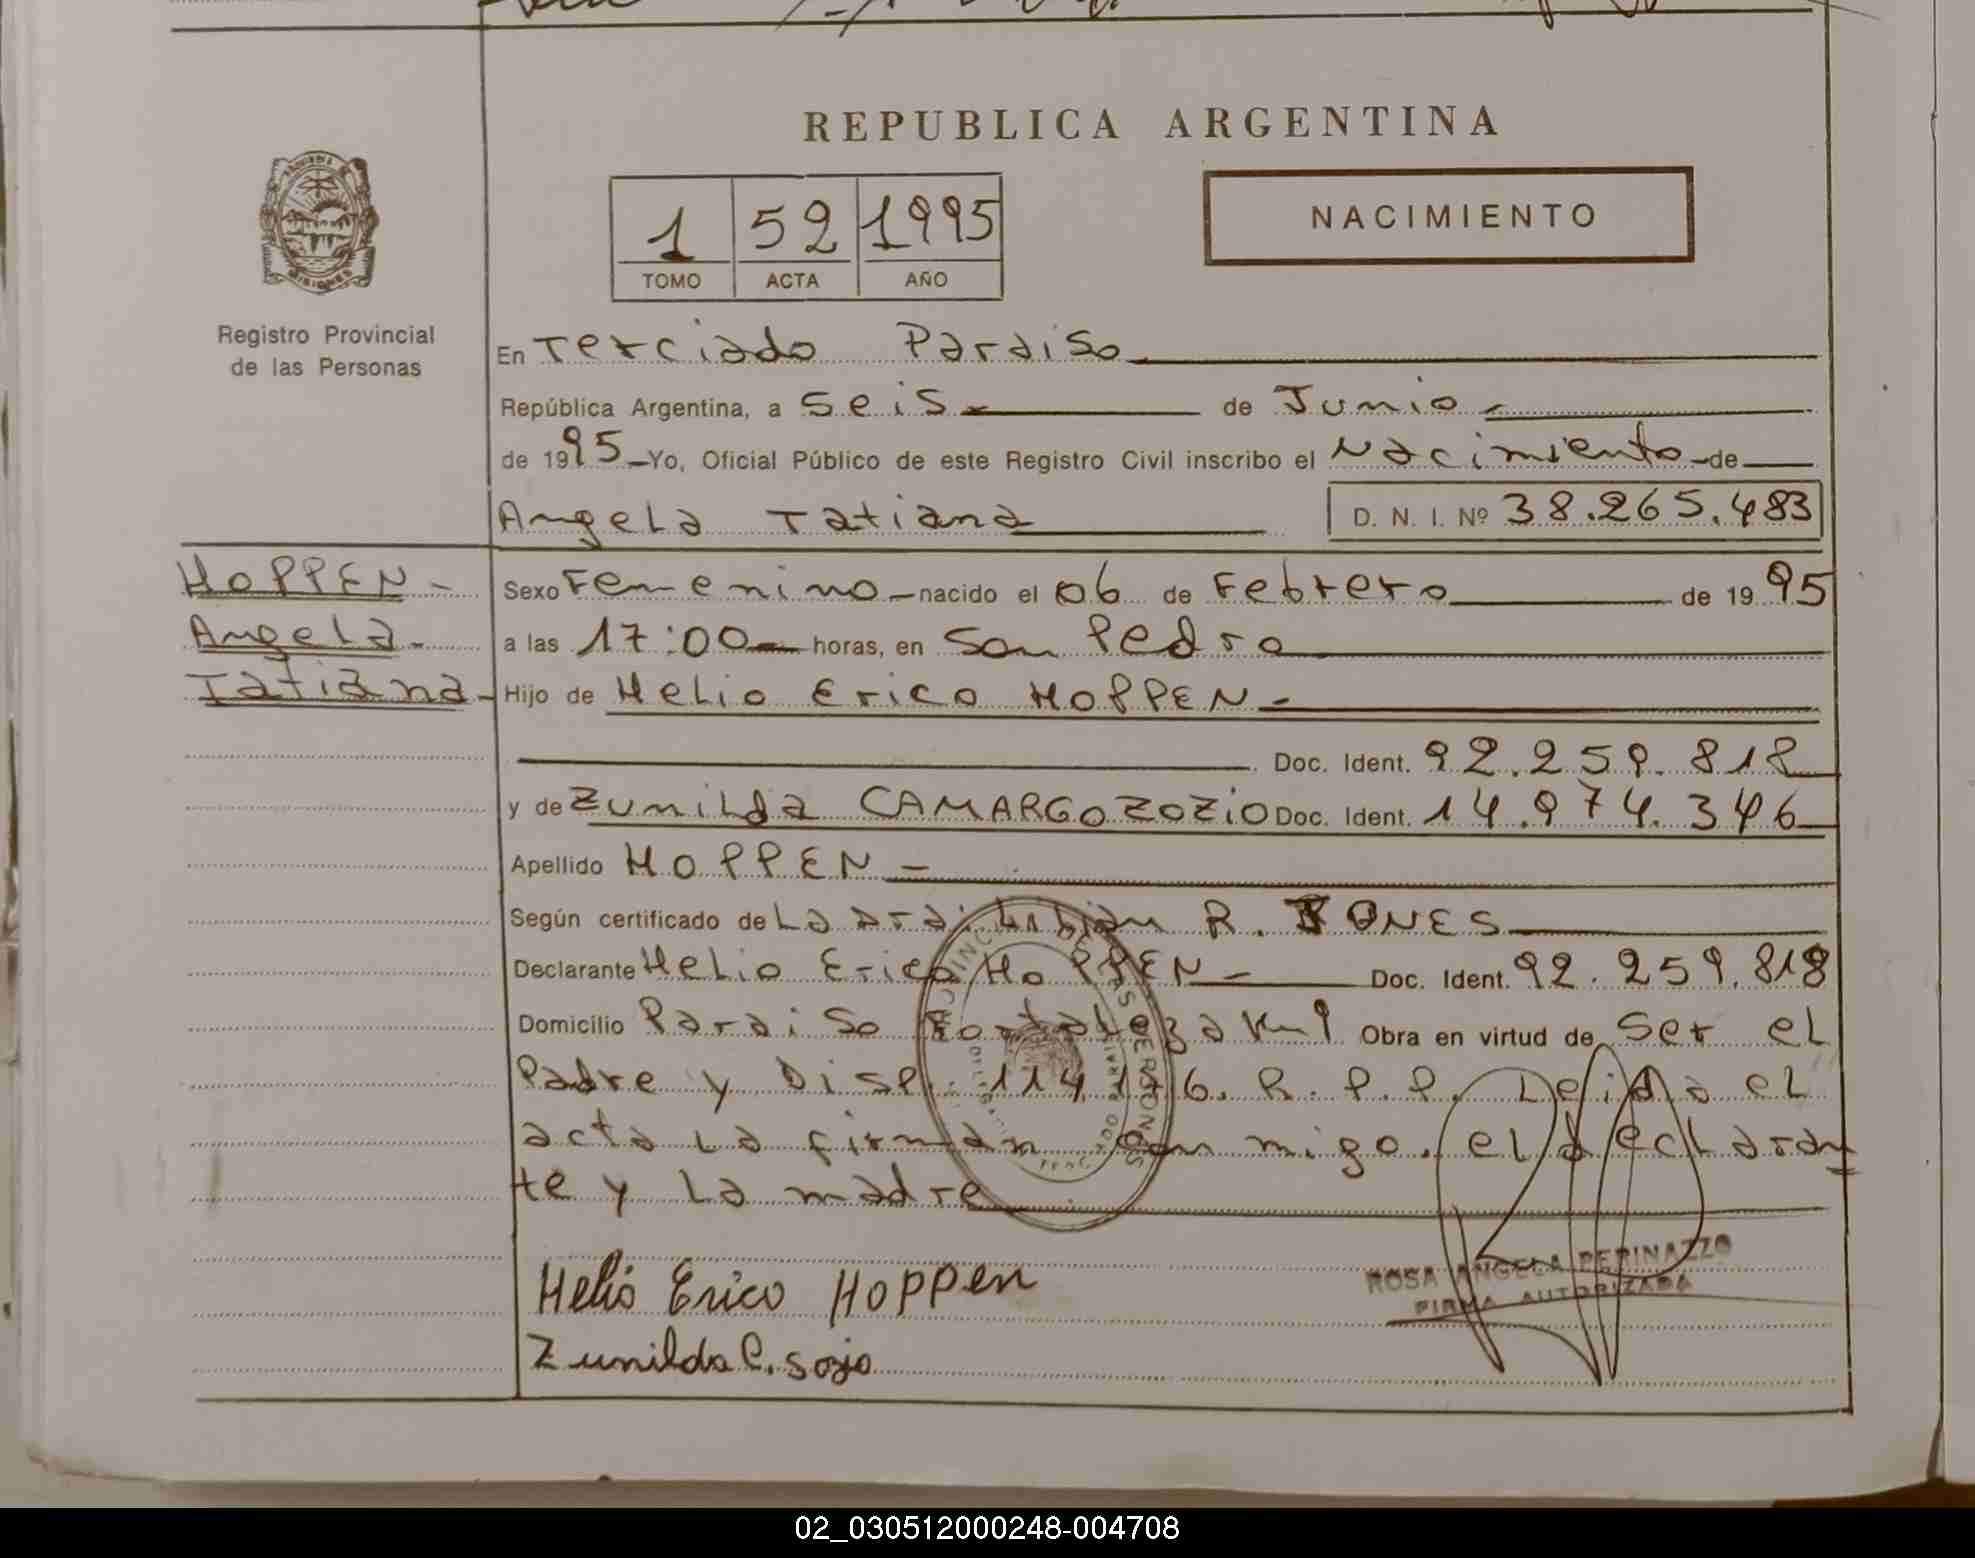 REPUBLICA ARGENTINA
1 52 1995
TOMO ACTA AÑO
NACIMIENTO
Registro Provincial
de las Personas
En Terciado Paraiso
República Argentina, a seis de Junio
de 1995 Yo, Oficial Público de este Registro Civil inscribo el Nacimiento de
Angela Tatiana D. N. I. Nº 38.265.483
HOPPEN
Angela
Tatiana
Sexo Femenino nacido el 06 de Febrero de 1995
a las 17:00 horas, en San Pedro
Hijo de Helio Erico HOPPEN
Doc. Ident. 92.259.818
y de Zunilda CAMARGO ZOZIO Doc. Ident. 14.974.346
Apellido HOPPEN
Según certificado de La Dra. R. JONES
Declarante Helio Erico HOPPEN Doc. Ident. 92.259.818
Domicilio Paraiso Fortaleza Km 9 Obra en virtud de ser el
Padre y Disp. 114.176. R. P. P. Leida el
acta la firman con migo. el declaran
te y la madre
Helio Erico HOPPen
Zunilda C. sozio
ROSA ANGELA PERINAZZO
FIRMA AUTORIZADA
02_030512000248-004708